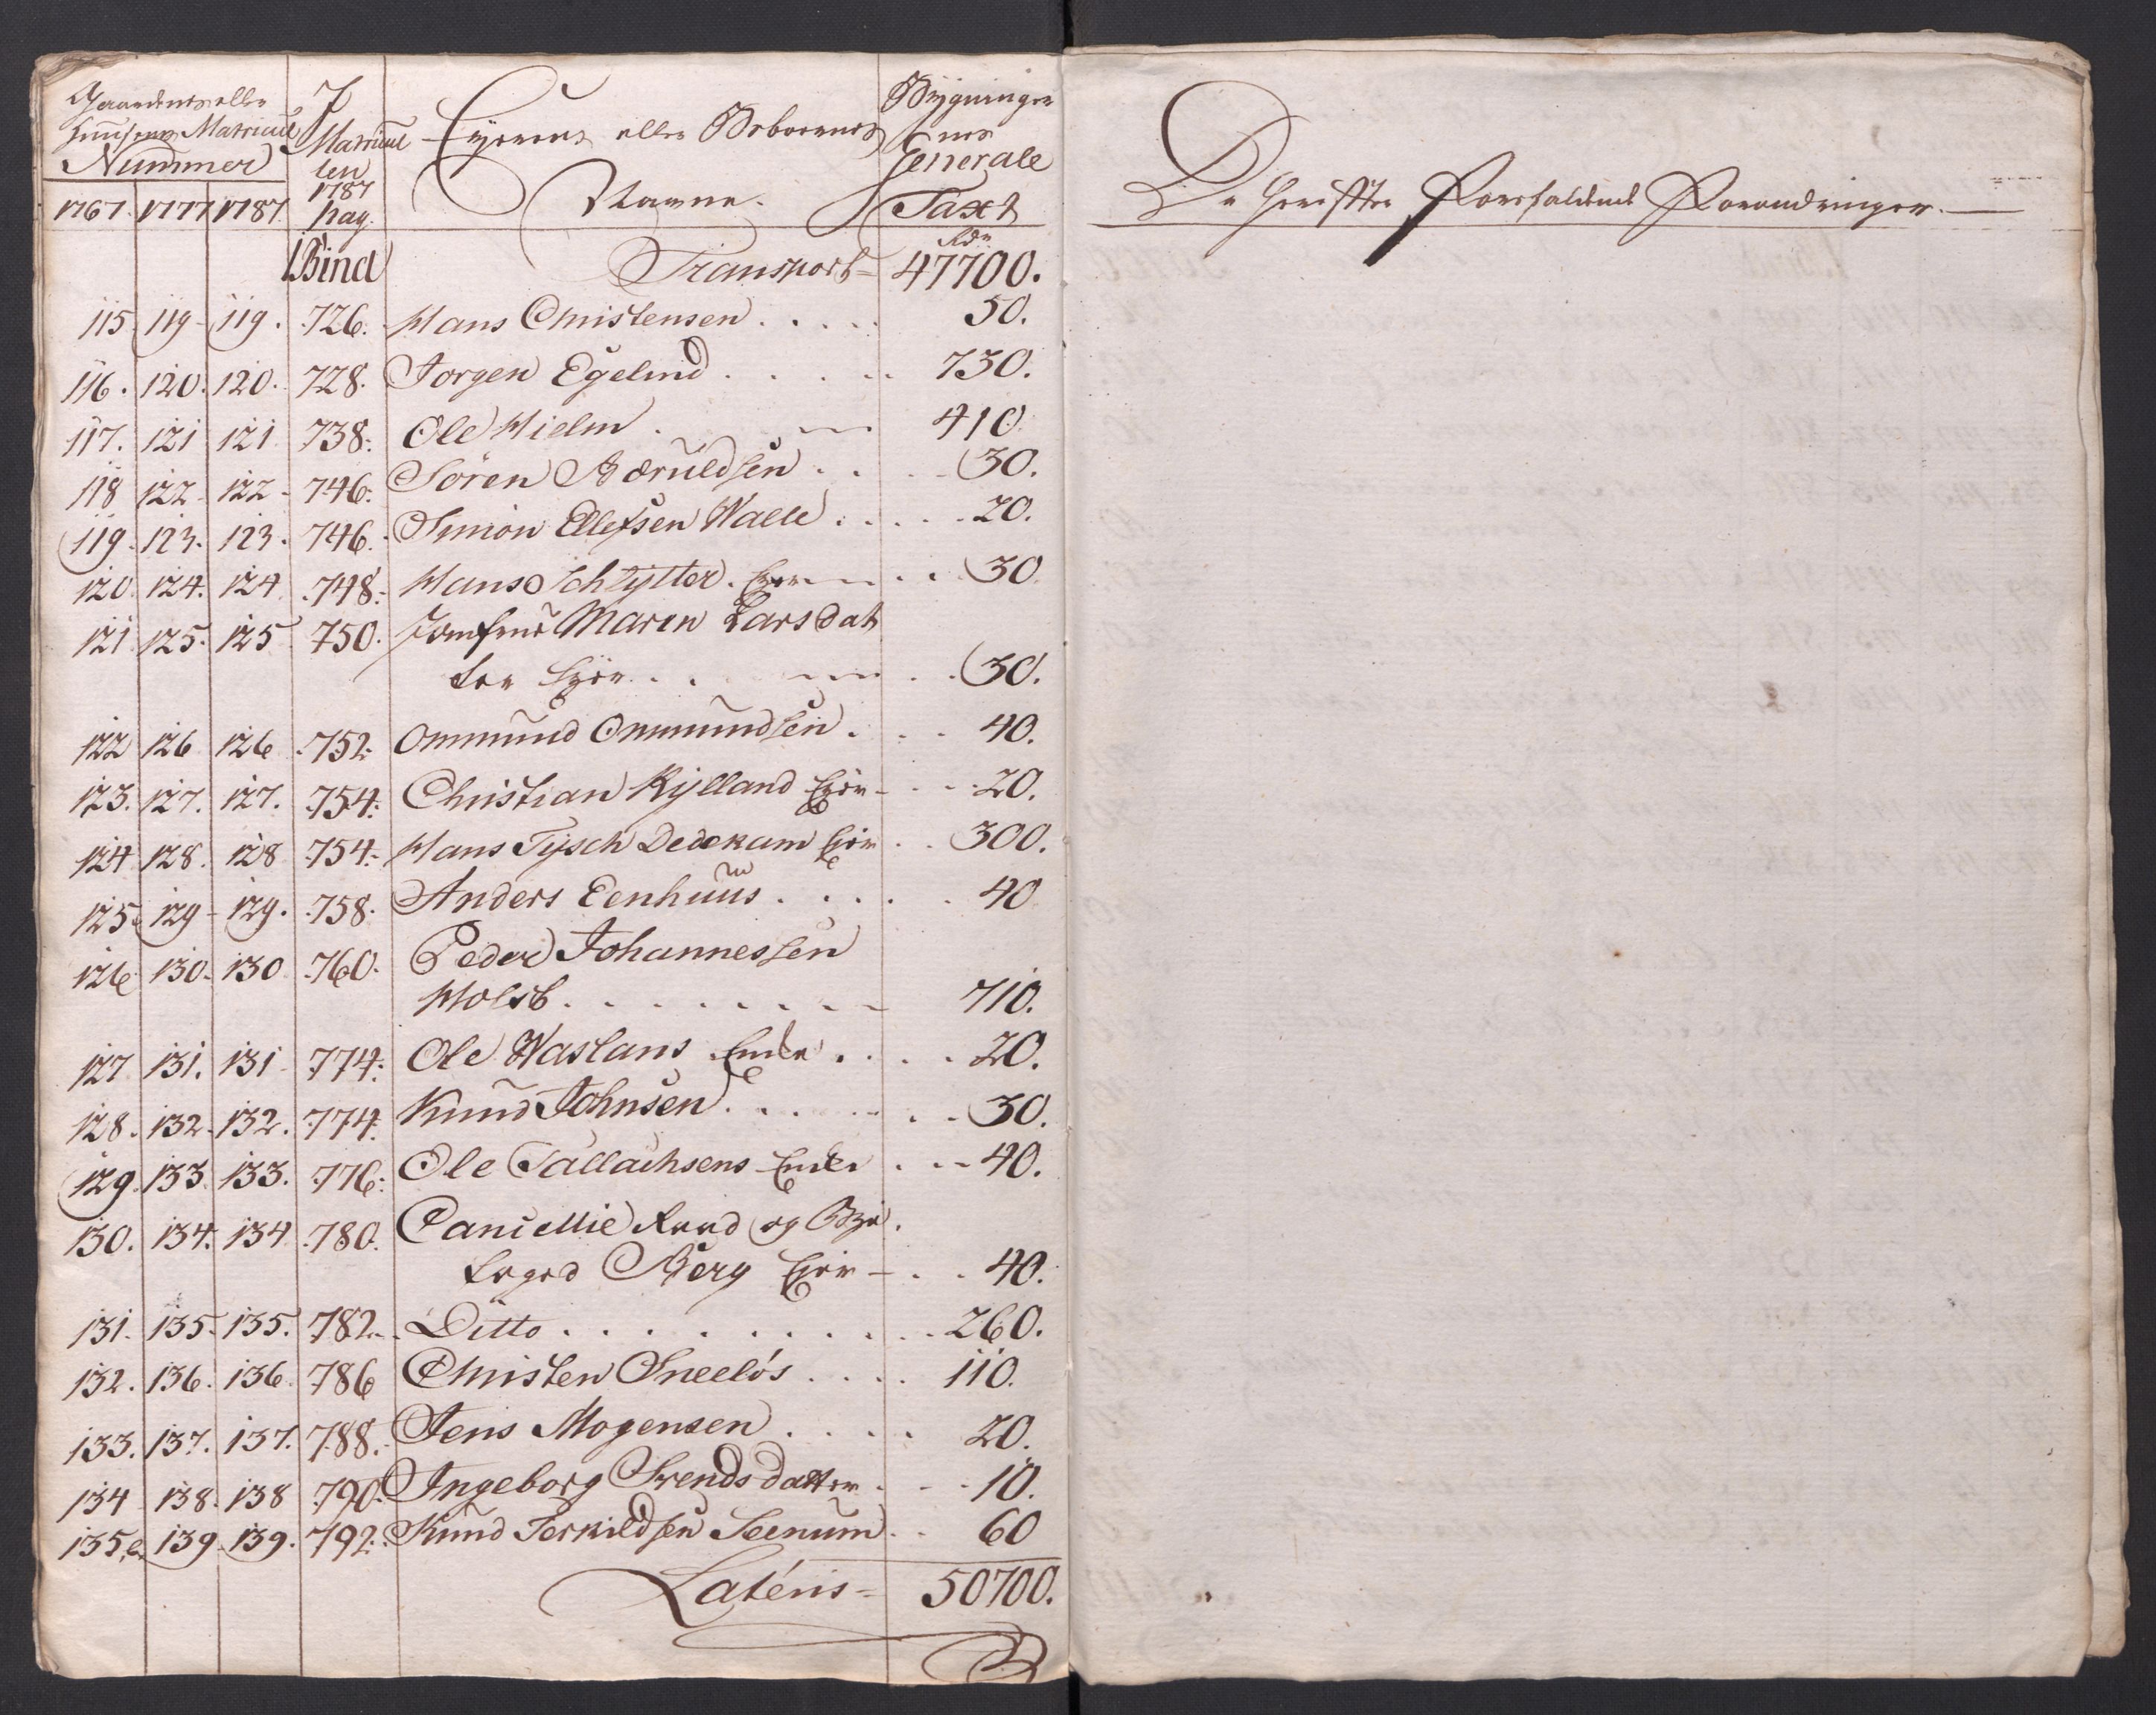 Gaardens eller
Huusenes Matricul
Nummer
1767. 1777 1787
I
Matricul
len
1787
pag.
Eyerens eller Beboerens
Navne.
Bÿgninger
nes
Generale
Taxt
1 Bind Transport- Rdr 47700.
115 119 119. 726. Hans Christensen 50.
116. 120. 120. 728. Jorgen Egelund 730.
117. 121 121 738. Ole Hielm 410
118 122 122 746. Sören Bæruldsen 30.
119. 123. 123. 746. Simon Ellefsen Walle 20.
120. 124. 124 748. Hans Schlÿtter. Eyer 30.
121 125. 125 750. Jomfrue Maren Lars Dat
ter Eyer 30.
122 126 126 752. Ommund Ommundsen 40.
123. 127. 127. 754. Christian Kÿlland Eyer 20.
124 128. 128 754. Hans Tÿsch Dedekam Eyer 300.
125. 129 129. 758. Anders Eenhuus 40
126 130. 130 760. Peder Johannessen
Holst 710.
127 131. 131 774. Ole Waslans Enke 20.
128. 132 132. 774. Knud Johnsen 30.
129. 133 133. 776. Ole Tallachsens Enke 40.
130. 134. 134 780. Cancellie Raad og Bye
foged Berg Eyer 40.
131. 135. 135. 782. Ditto 260.
132. 136. 136 786 Christen Sneelós 110.
133. 137. 137. 788. Jens Mogensen 20.
134 138. 138 790. Ingeborg Svends datter 10.
135. 139 139. 792. Knud Terkildsen Seenum 60
Latéris 50700.
De herefter Forefaldende Forandringer.